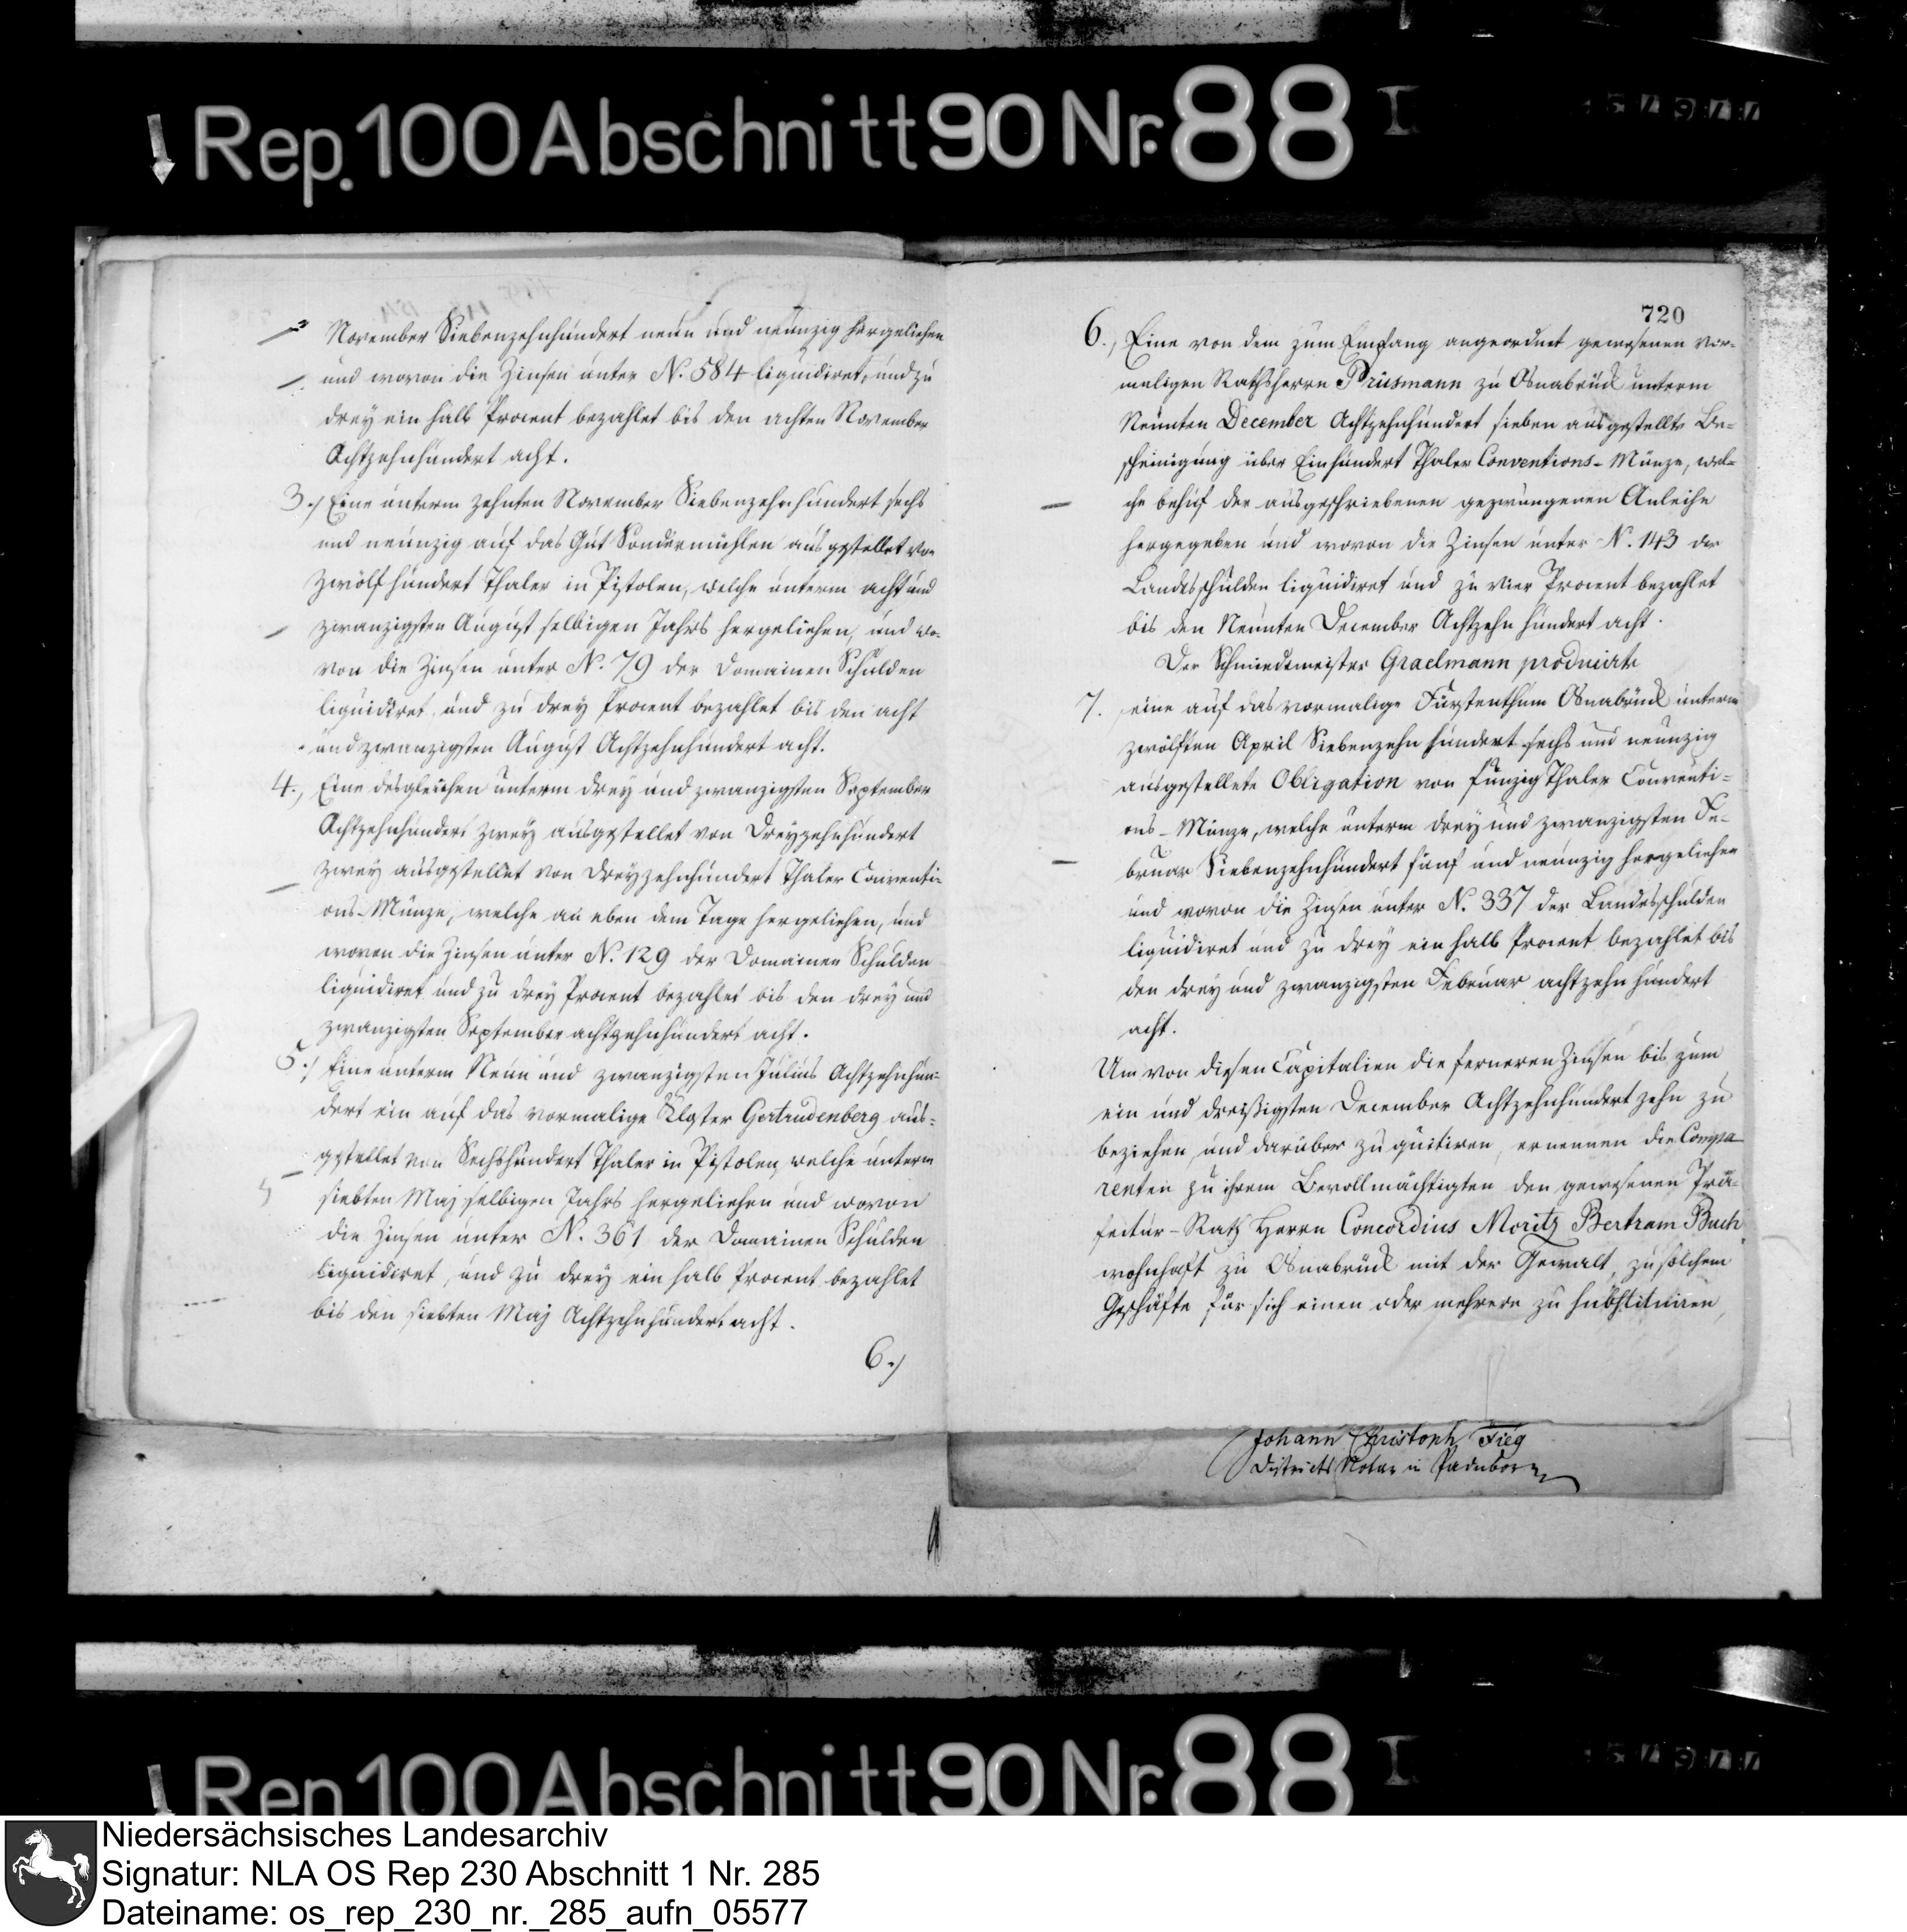 Rep. 100 Abschnitt 90 Nr. 88 I
November Siebenzehnhundert neun und neunzig hergeliehen
und wovon die Zinsen unter N. 584 liquidiret, und zu
drey ein halb Procent bezahlet bis den achten November
Achtzehnhundert acht.
3.) Eine unterm zehnten November Siebenzehnhundert sechs
und neunzig auf das Gut Sondermühlen ausgestellet von
zwölfhundert Thaler in Pistolen, welche unterm acht und
zwanzigsten August selbigen Jahrs hergeliehen, und wo-
von die Zinsen unter N. 79 der Domainen Schulden
liquidiret und zu drey Procent bezahlet bis den acht
und zwanzigsten August Achtzehnhundert acht.
4., Eine desgleichen unterm drey und zwanzigsten September
Achtzehnhundert zwey ausgestellet von Dreyzehnhundert
zwey ausgestellet von dreyzehnhundert Thaler Conventi-
ons-Münze, welche an eben dem Tage hergeliehen, und
wovon die Zinsen unter N. 129 der Domainen Schulden
liquidiret und zu drey Procent bezahlet bis den drey und
zwanzigsten September achtzehnhundert acht.
5.) Eine unterm Neun und zwanzigsten Julius Achtzehnhun-
dert ein auf das vormalige Kloster Gertrudenberg aus-
gestellet von Sechshundert Thaler in Pistolen, welche unterm
siebten Maj selbigen Jahrs hergeliehen und wovon
die Zinsen unter N. 361 der Domainen Schulden
liquidiret, und zu drey ein halb Procent bezahlet
bis den siebten Maj Achtzehnhundert acht.
6.)
720
6., Eine von dem zum Empfang angeordnet gewesenen vor-
maligen Rathsherrn Prüsmann zu Osnabrück unterm
Neunten December Achtzehnhundert sieben ausgestellte Be-
scheinigung über Einhundert Thaler Conventions-Münze, wel-
che behuf der ausgeschriebenen gezwungenen Anleihe
hergegeben und wovon die Zinsen unter N. 143 der
Landesschulden liquidiret und zu vier Procent bezahlet
bis den Neunten December Achtzehn hundert acht.
Der Schmiedemeister Graelmann producirte
7. eine auf das vormalige Fürstenthum Osnabrück unterm
zwölften April Siebenzehn hundert sechs und neunzig
ausgestellete Obligation von funzig Thaler Conventi-
ons-Münze, welche unterm drey und zwanzigsten Fe-
bruar Siebenzehnhundert fünf und neunzig hergeliehen
und wovon die Zinsen unter N. 337 der Landesschulden
liquidiret und zu drey ein halb Procent bezahlet bis
den drey und zwanzigsten Februar achtzehn hundert
acht.
Um von diesen Capitalien die ferneren Zinsen bis zum
ein und dreißigsten December Achtzehnhundert zehn zu
beziehen, und darüber zu quitiren, ernennen die Compa-
renten zu ihrem Bevollmächtigten den gewesenen Prä-
fectur-Rath Herrn Concordius Moritz Bertram Buch
wohnhaft zu Osnabrück mit der Gewalt, zu solchem
Geschäfte für sich einen oder mehrere zu substituiren,
Johann Christoph Fieg
Districts Notar in Paderborn
Rep. 100 Abschnitt 90 Nr. 88 I
Niedersächsisches Landesarchiv
Signatur: NLA OS Rep 230 Abschnitt 1 Nr. 285
Dateiname: os_rep_230_nr._285_aufn_05577